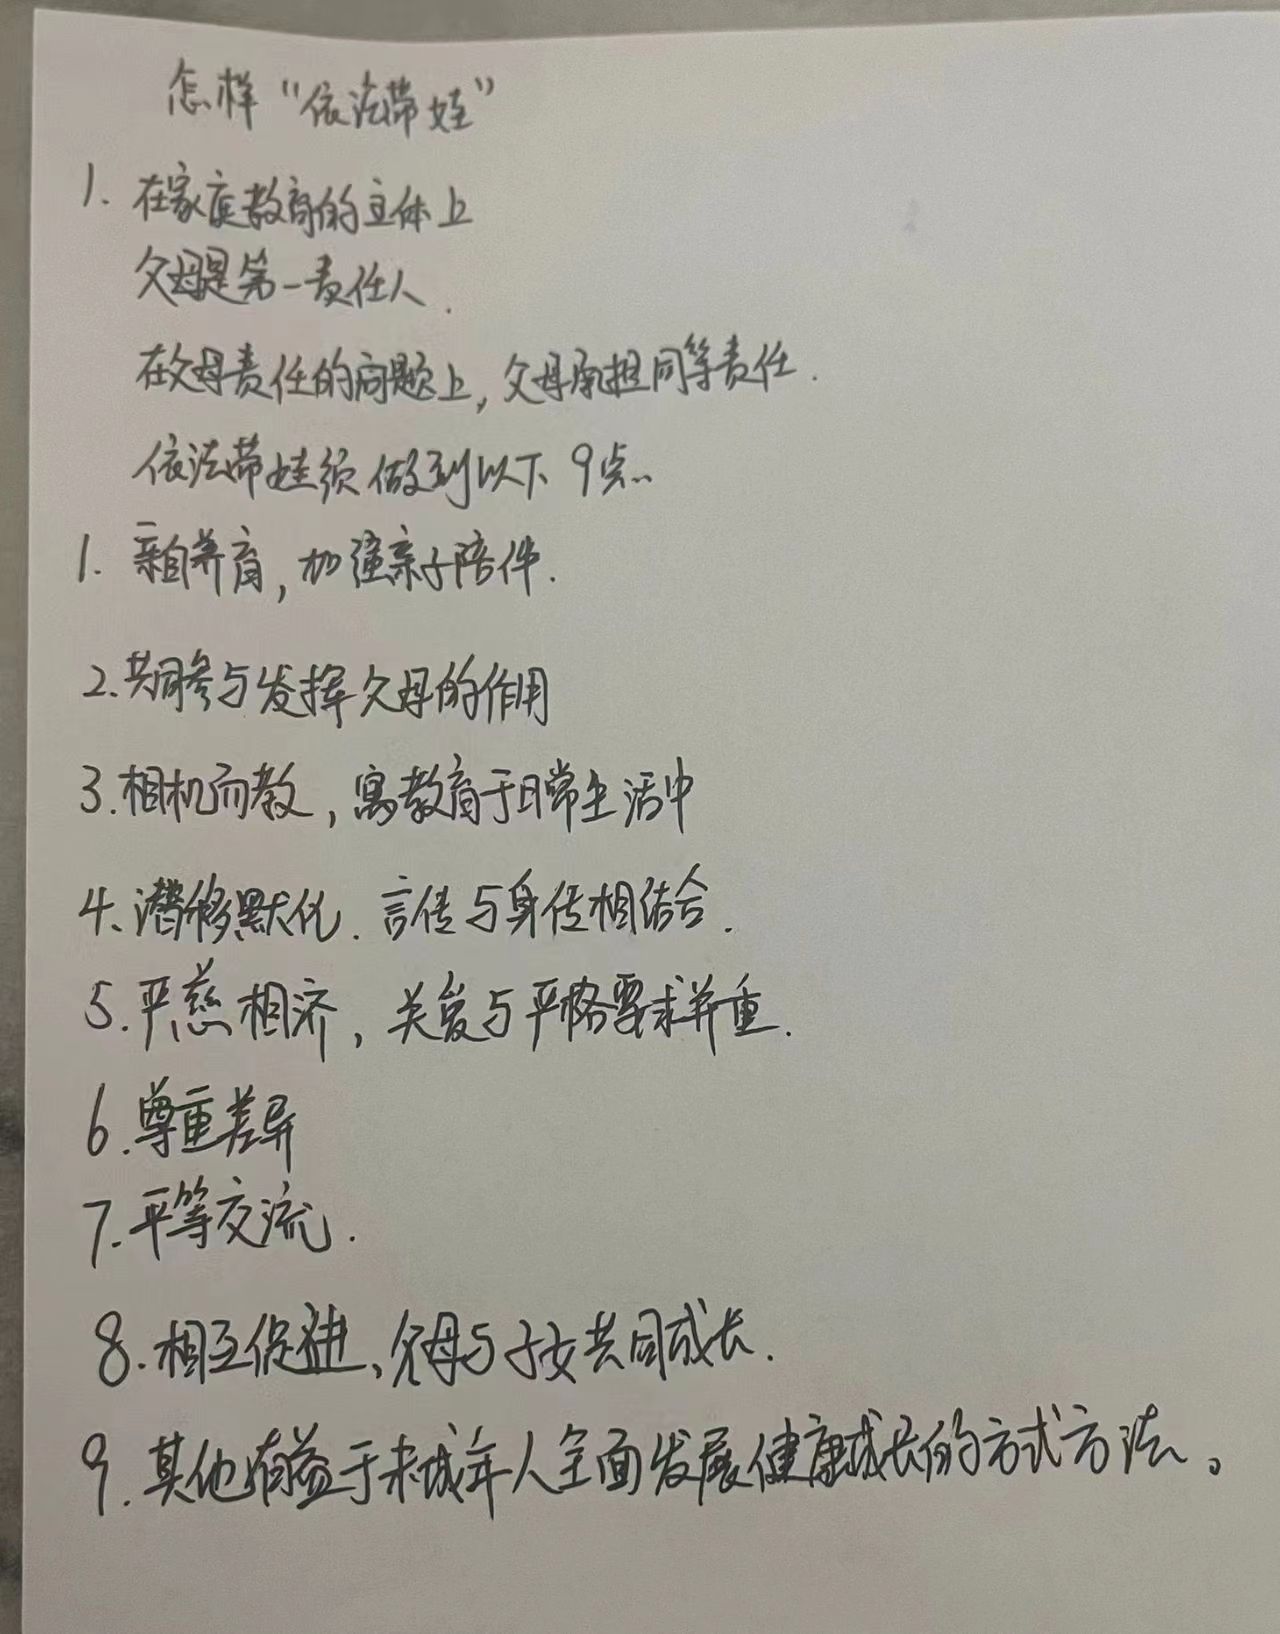 怎样“依法带娃”
1. 在家庭教育的主体上
父母是第一责任人.
在父母责任的问题上,父母承担同等责任.
依法带娃须做到以下9点..
1. 亲自养育,加强亲子陪伴.
2.共同参与发挥父母的作用
3.相机而教,寓教育于日常生活中
4、潜移默化.言传与身传相结合.
5.严慈相济,关爱与严格要求并重.
6.尊重差异
7.平等交流.
8.相互促进、父母与子女共同成长.
9.其他有益于未成年人全面发展健康成长的方式方法。